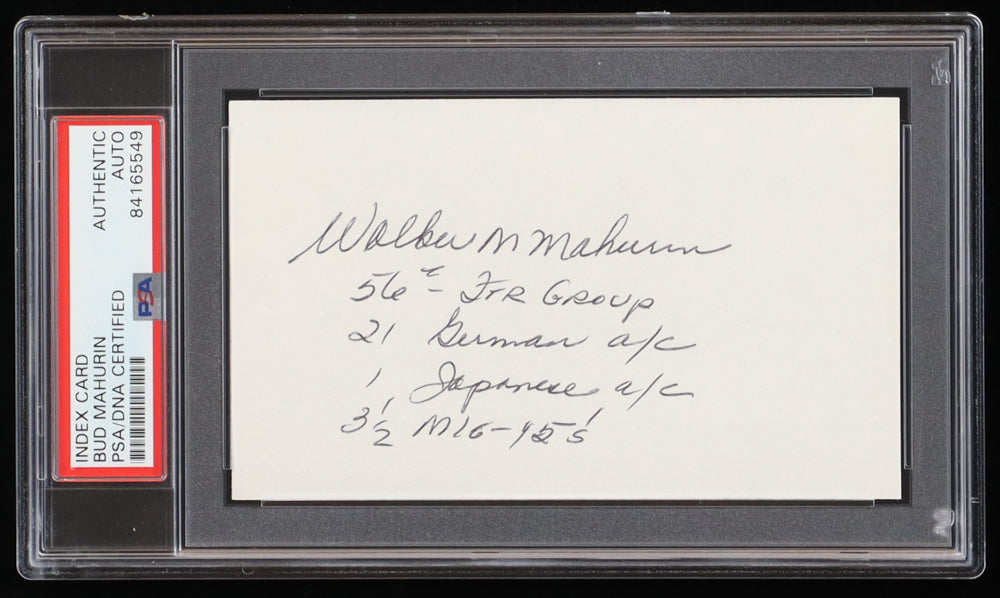 INDEX CARD
BUD MAHURIN
PSA/DNA CERTIFIED
AUTHENTIC
AUTO
84165549
PSA
Walker M Mahurin
56th FTR GROUP
21 German a/c
1 Japanese a/c
3 1/2 MIG-15's